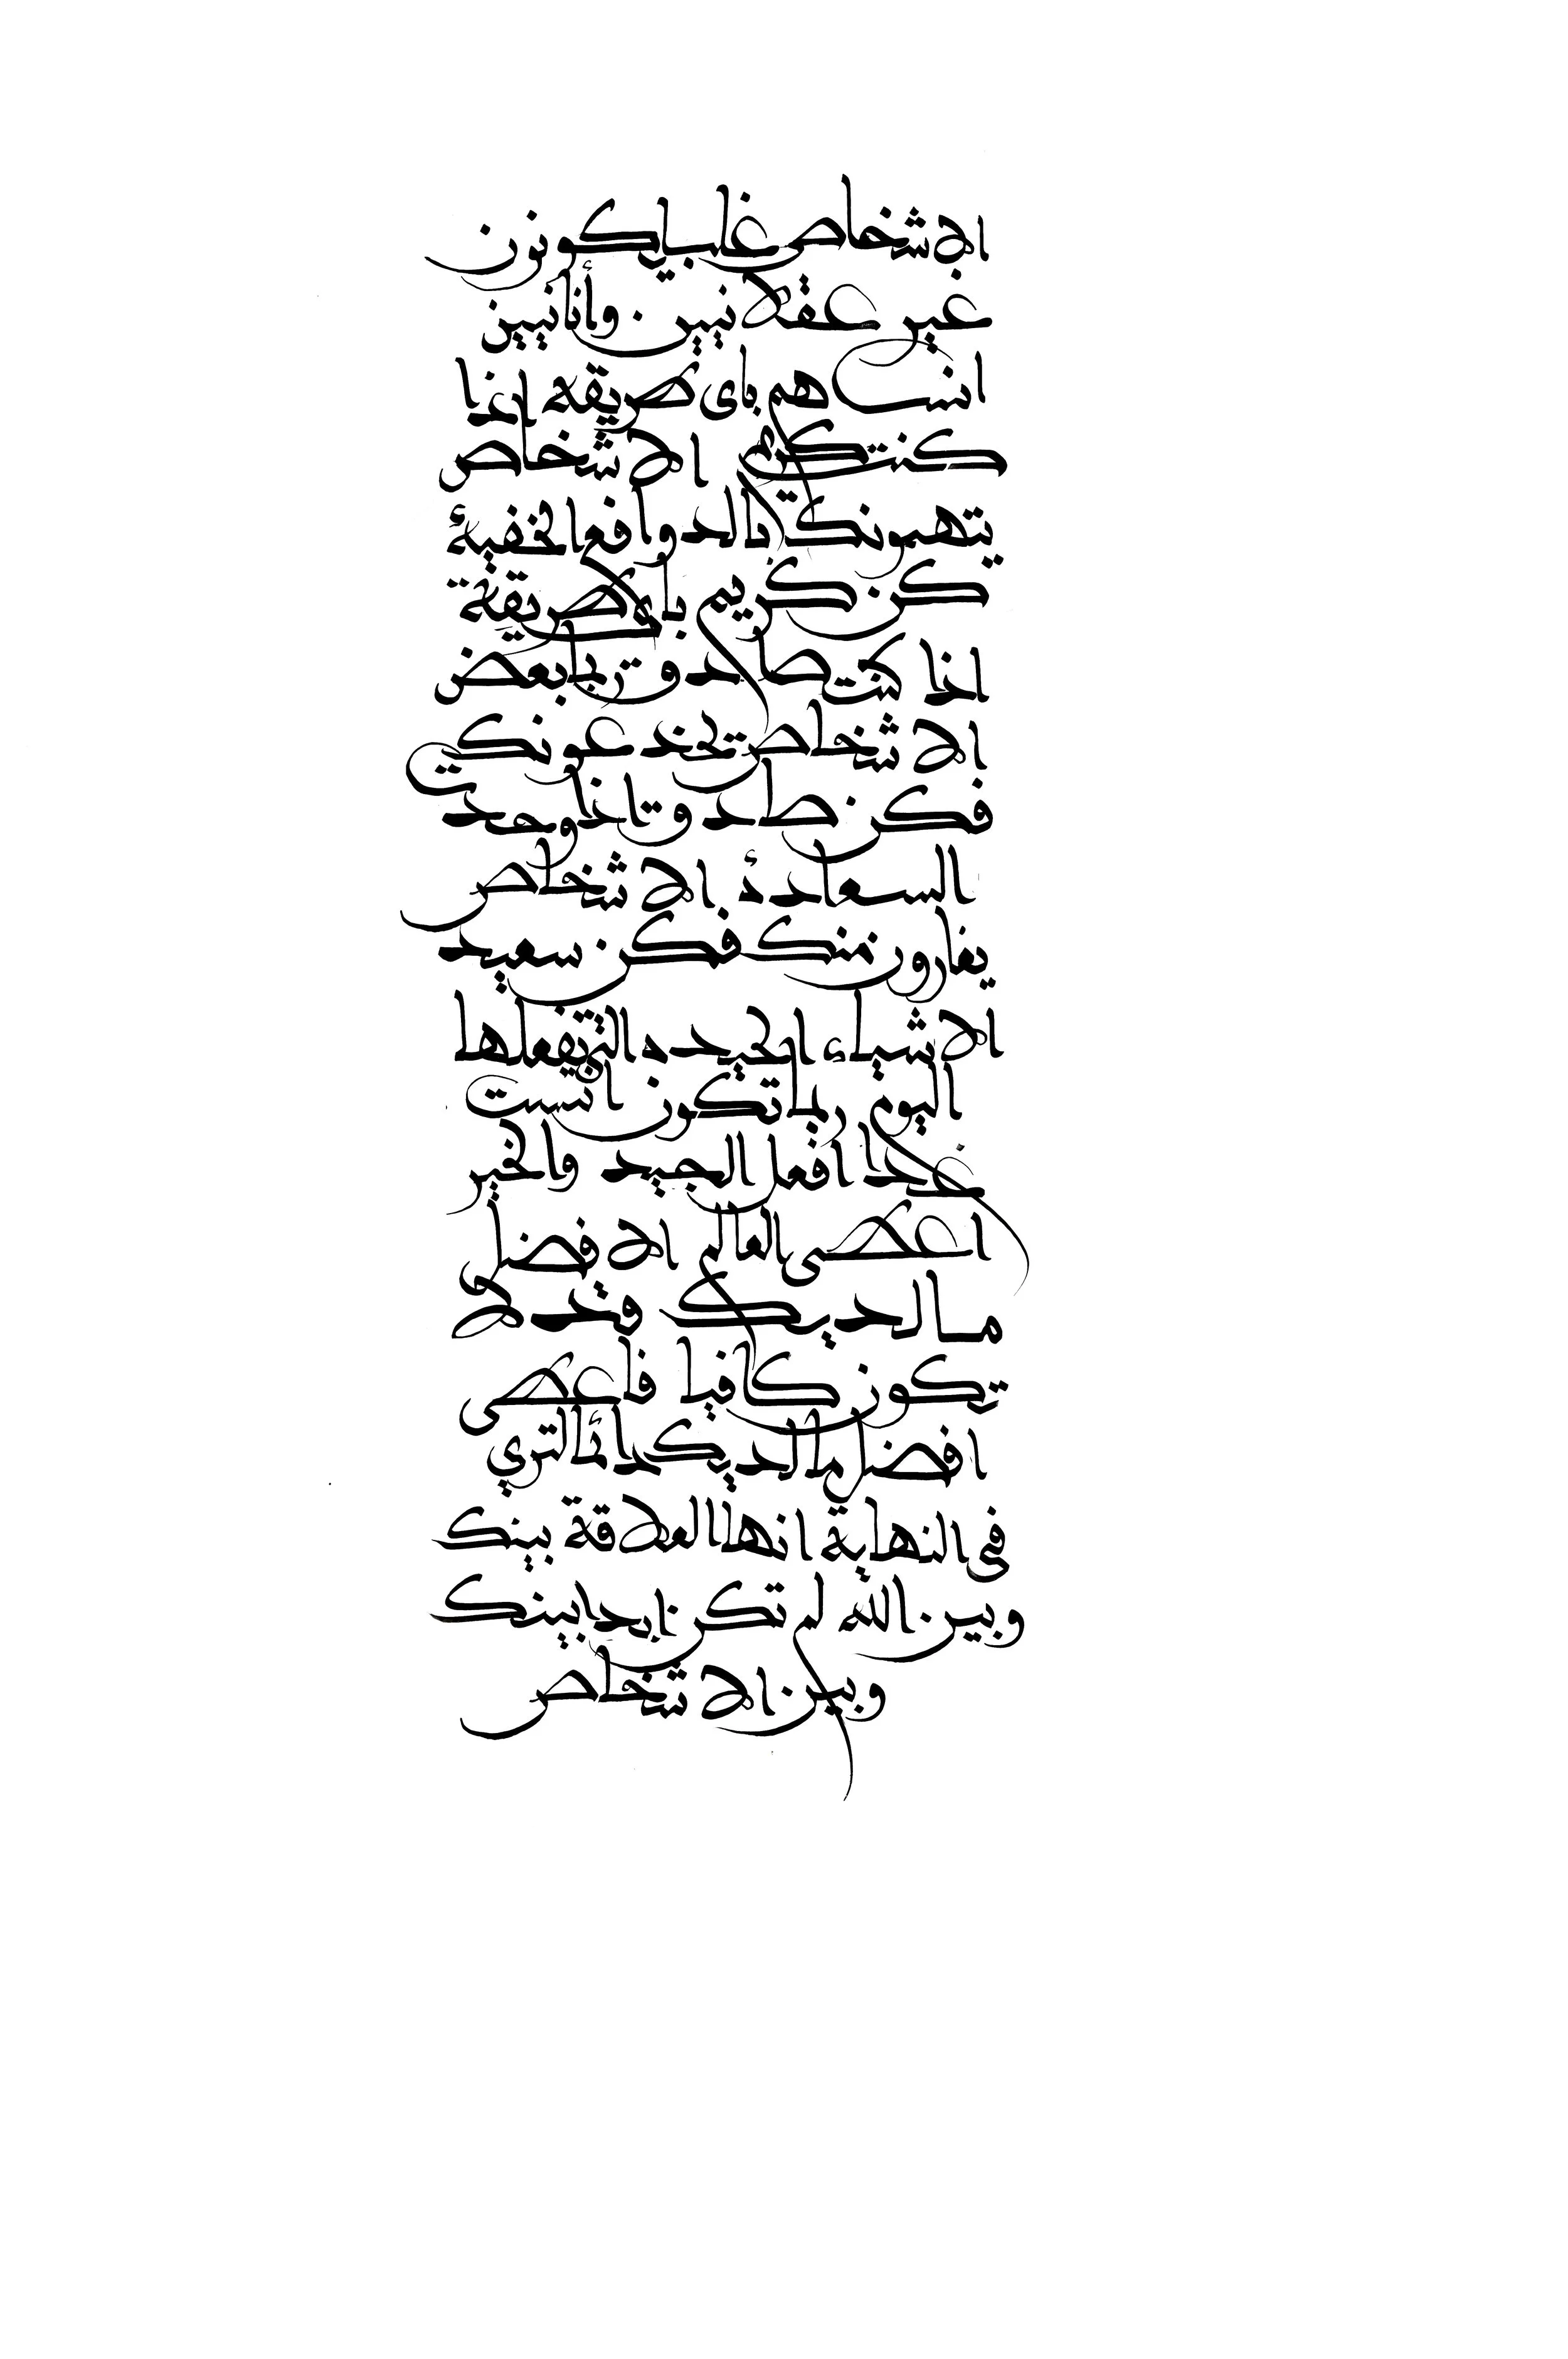 الاشخاص غلبا يكونون
غير عقلانيين وأنانيين
انسـ هم باى طريقة اذا
كنت كريم الاشخاص
يتهمونك بالدوافع الخفية
كن كريم باى طريقة
اذا كنت صادق ربما بعض
الاشخاص تخدعونك
فكن صادق اذا وجدت
السعادة الاشخاص
يغارون منك فكن سعيد
الاشياء الجيده التى تفعلها
اليوم ربما تكون انسيت
غدا افعل الجيد والخير
اعطى العالم الافضل
ما لديك وقد لا
تكون كافيا فاعطى
افضل ما لديك دائما لترى
فى النهاية انها العلاقة بينك
وبين الله لم تكن ابدا بينك
وبين الاشخاص